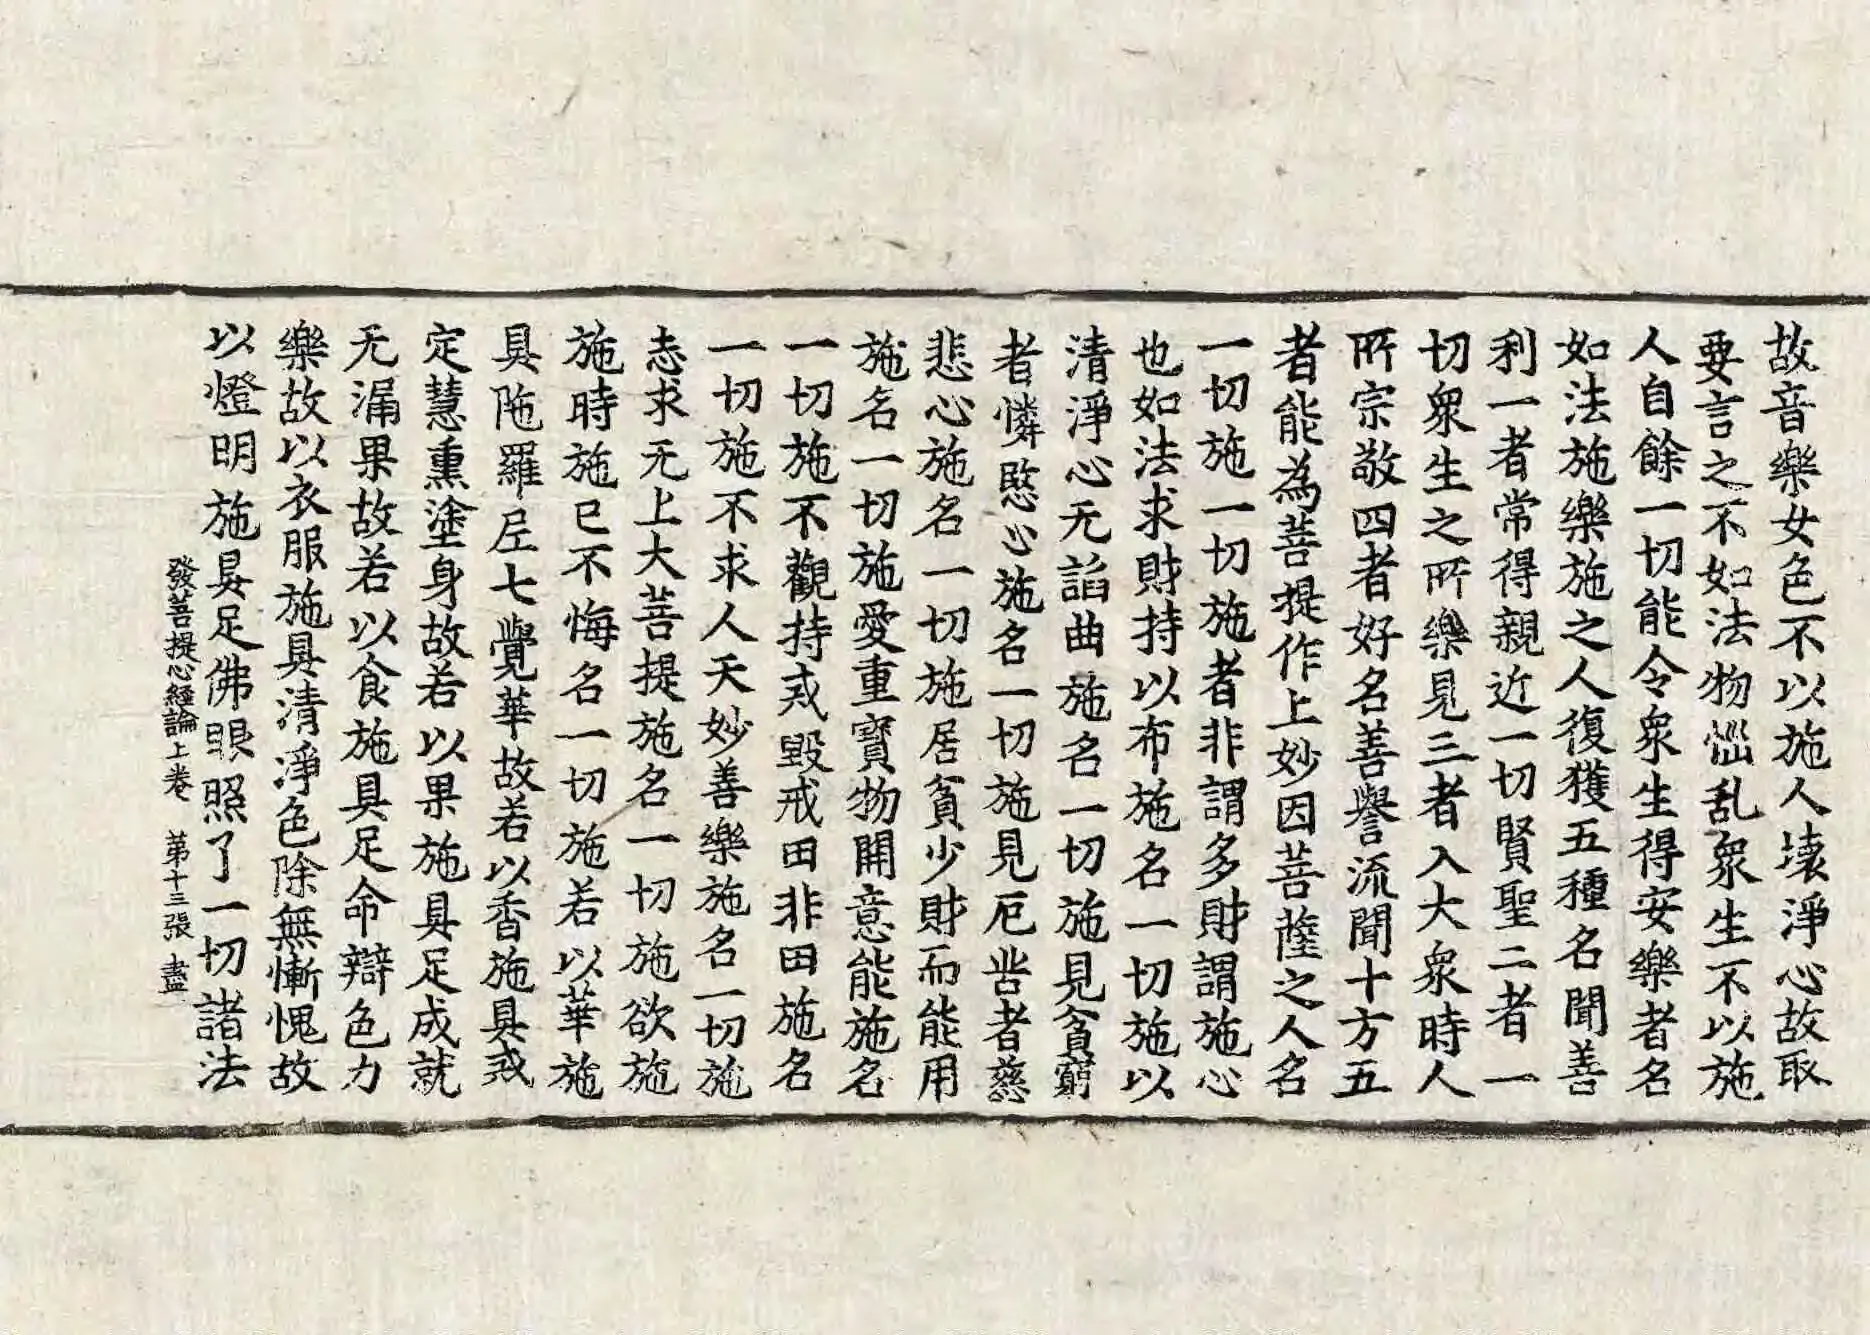 故音樂女色不以施人壞淨心故取
要言之不如法物惱乱衆生不以施
人自餘一切能令衆生得安樂者名
如法施樂施之人復獲五種名聞善
利一者常得親近一切賢聖二者一
切衆生之所樂見三者入大衆時人
所宗敬四者好名善譽流聞十方五
者能為菩提作上妙因菩薩之人名
一切施一切施者非謂多財謂施心
也如法求財持以布施名一切施以
清淨心无諂曲施名一切施見貧窮
者憐愍心施名一切施見厄苦者慈
悲心施名一切施居貧少財而能用
施名一切施愛重寶物開意能施名
一切施不觀持戒毀戒田非田施名
一切施不求人天妙善樂施名一切施
志求无上大菩提施名一切施欲施
施時施已不悔名一切施若以華施
具陁羅尼七覺華故若以香施具戒
定慧熏塗身故若以果施具足成就
无漏果故若以食施具足命辯色力
樂故以衣服施具清淨色除無慚愧故
以燈明施具足佛眼照了一切諸法
發菩提心經論上卷　第十三張　盡